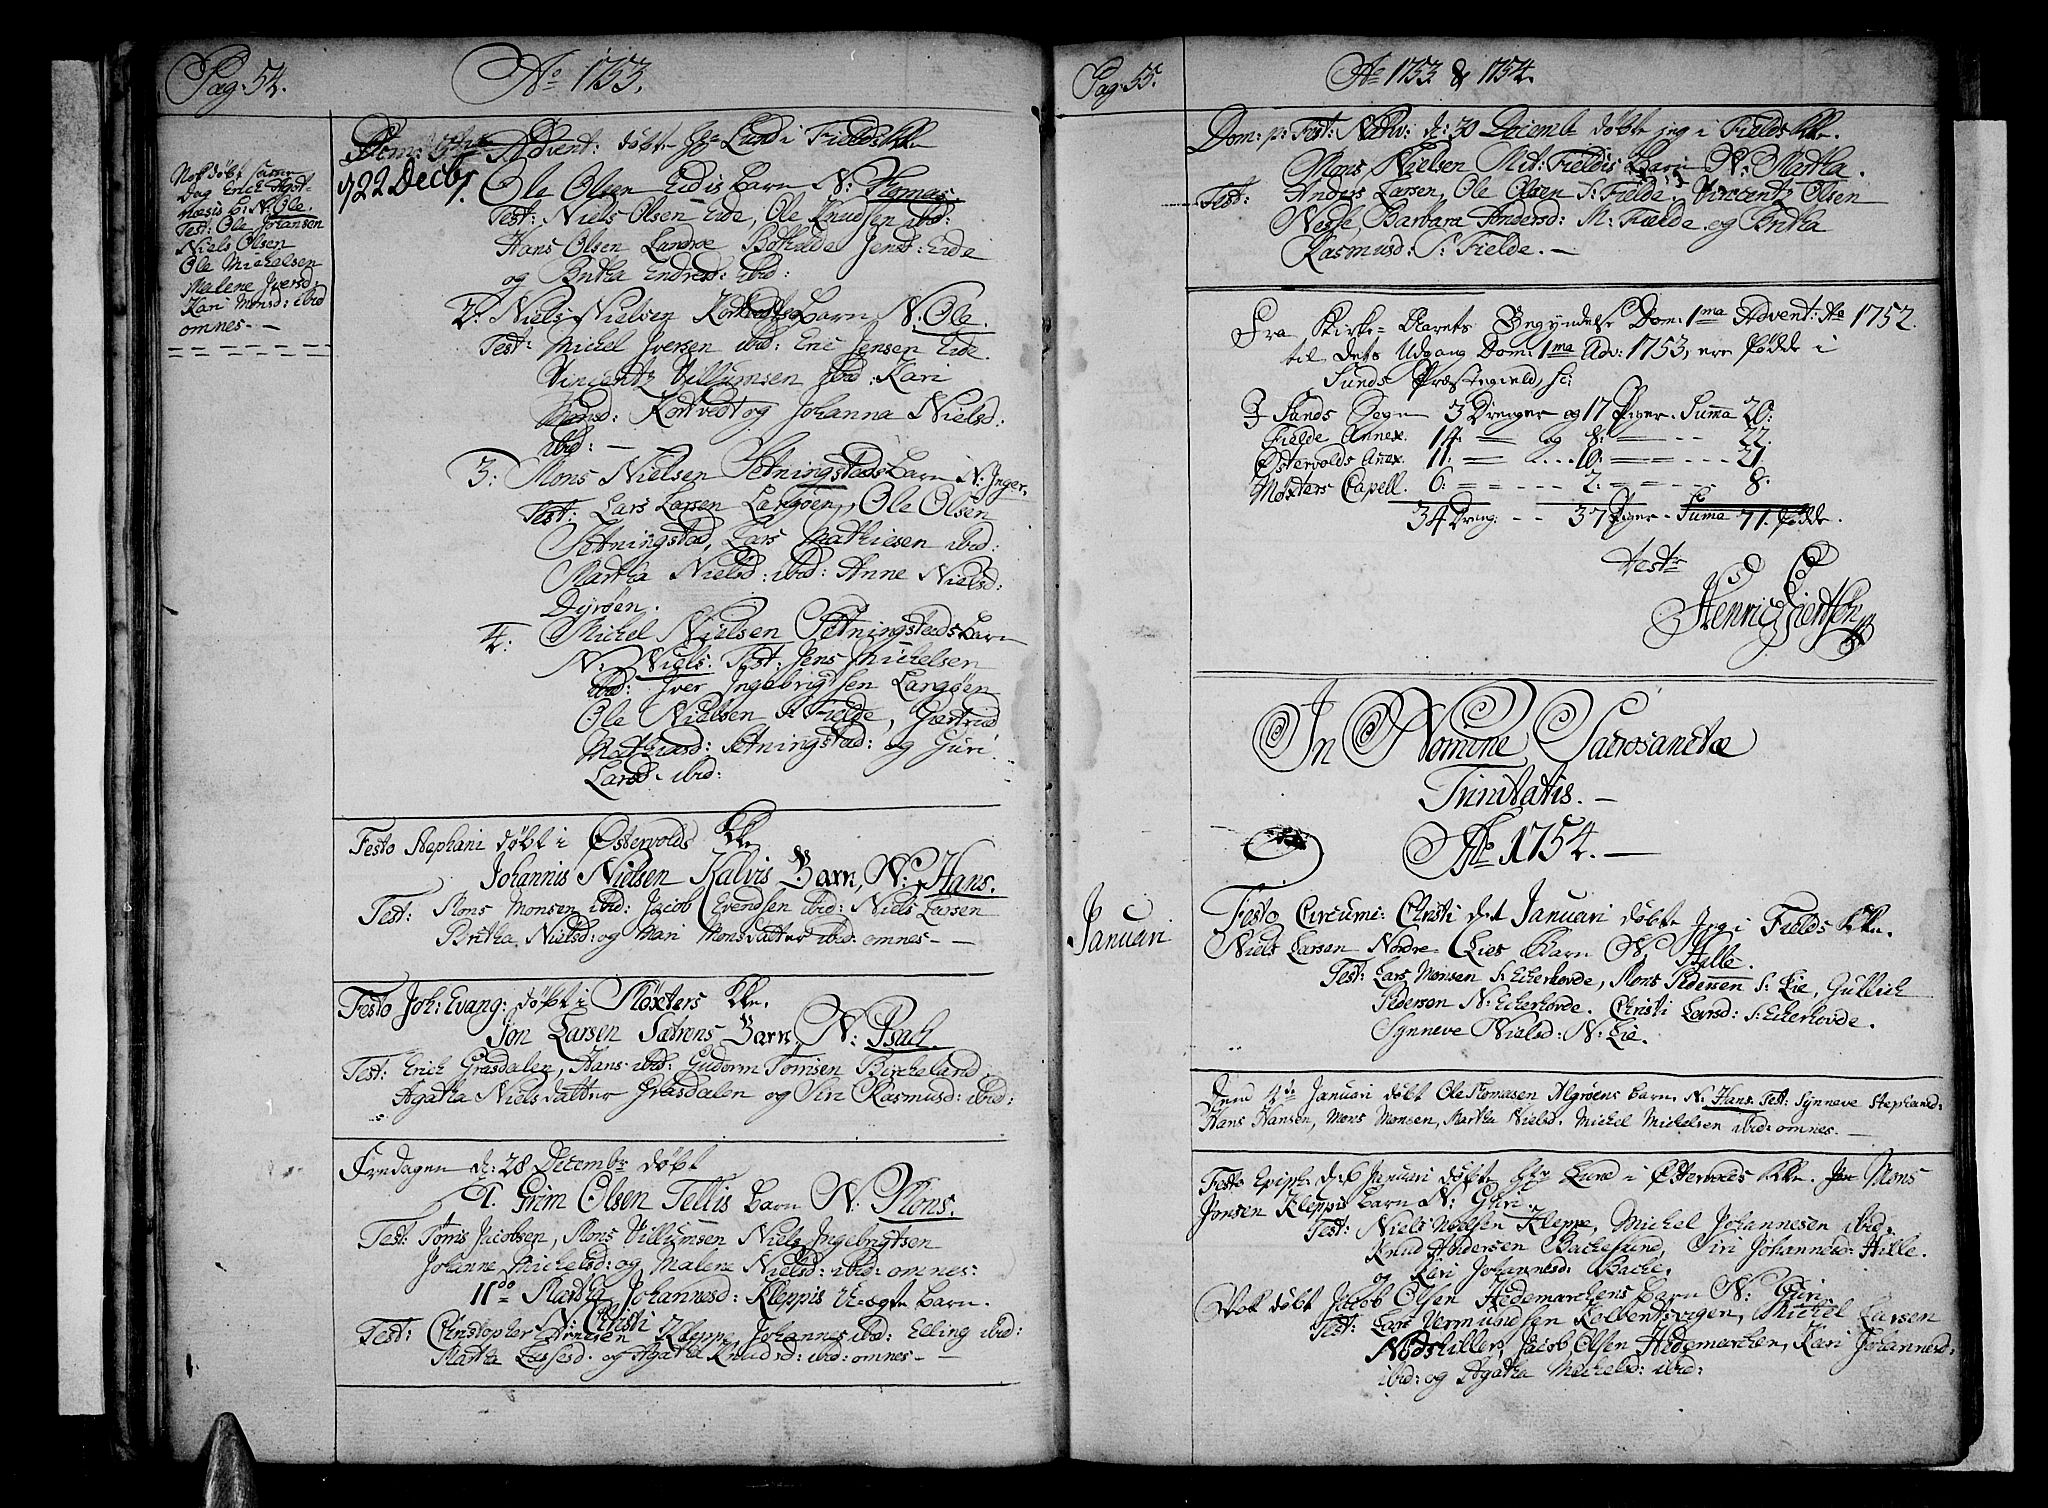 Pag. 54.
Ao 1753.
Nok døbt samme
Dag Erich
B: N. Ole.
Test: Ole Johansen
Niels Olsen
Ole Michelsen
Malene Jversd:
Kari Monsd: ibid
omnes. -
Dom: Advent: døbte Hr Lund i Fields Kke
22 Decbr
1. Ole Olsen Eidis barn N: Thomas.
Test: Niels Olsen Eide, Ole Knudsen ibd:
Hans Olsen Lundvæ Bothilde Jensd: Eide
og Britha Endresd: ibid:
2: Niels Nielsen Barn N. Ole.
Test: Michel Jversen ibid: Eric Jensen Eide.
Vincentz Villumsen ibid: Kari
Monsd: Kortvedt og Johanna Nielsd:
ibid: -
3: Mons Nielsen Sætningstads barn N: Inger.
Test: Lars Larsen Langøen, Ole Olsen
Sætningstad, Lars Mathiesen ibid:
Martha Nielsd: ibid: Anne Nielsd:
Dyrøen.
4: Michel Nielsen Sætningstads barn
N: Niels. Test: Jens Michelsen
ibid: Jver Ingebrigtsen Langøen
Ole Nielsen S: Fielde, Giertrud
Mathiasd: Sætningstad: og Guri
Larsd: ibid:
Festo Stephani døbt i Østervolds Kke
Johannis Nielsen Kalvis Barn, N: Hans.
Test: Mons Monsen ibid: Jacob Evendsen ibid: Niels Larsen
Britha Nielsd: og Mari Monsdatter ibid: omnes - -
Festo Joh: Evang: døbt i Møxters Kke.
Jon Larsen Sætrens Barn N: Isach.
Test: Erich Grasdalen, Hans ibid: Guderm Tomsen Bircheland,
Agatha Nielsdatter Grasdalen og Siri Rasmusd: ibid:
Fredagen d: 28 Decembr døbt
1. Grim Olsen Tellis barn N: Mons.
Test: Tomis Jacobsen, Mons Villumsen Niels Ingebrigtsen
Johanne Michelsd: og Malene Nielsd: ibid: omnes:
IIdo Martha Johannesd: Kleppis Uægte barn.
N: Christi
Test: Christopher Arnesen Kleppe, Johannes ibid: Elling ibid:
Martha Lassesd. og Agatha Knudsd: ibid: omnes - -
Pag: 55.
Ao 1753 & 1754.
Dom: p: Fest: Nativ: d: 30 Decemb: døbte jeg i Fields Kke.
Mons Nielsen Mit: Fieldis Barn N: Martha.
Test: Anders Larsen, Ole Olsen S: Fielde, Vincentz Olsen
Nesse, Barbara Andersd: M: Fielde og Britha
Rasmusd: S: Fielde. -
Fra Kirke-Aarets Begyndelse Dom: 1ma Advent: Ao 1752.
til dets Udgang Dom: 1ma Adv: 1753, ere Fødde i
Sunds Præstegield, sc:
I Sunds Sogn 3 Drenger og 17 Piger. Summa 20:
Fielde Annex. 14. = og 8: = - - 22.
Østervolds Anex. 11. = & ... 10: = - - - 21.
Møxters Capell. 6: = - - - - 2: - = - - - 8.
34 Dreng: - - 37 Piger - Suma 71. Fødde.
Test:
Henric Giertsen
In Nomine Sacrosanctæ
Trinitatis. -
Ao 1754. -
Januari
Festo Circumc: Christi det Januari døbte Jeg i Fields Kke.
Niels Larsen Nordre Lies Barn N: Hille.
Test: Lars Monsen S: Echerhovde, Mons Pedersen S: Lie, Gullich
Pedersen N: Echerhovde. Christi Larsd: S: Echerhovde.
Synneve Nielsd: N: Lie.
Denn 4de Januari døbt Ole Thomasen Algrøens barn, N. Hans. Test: Synneve Stephansd:
Hans Hansen, Mons Monsen, Martha Nielsd. Michel Michelsen ibid: omnes. -
Festo Epiph: d: 6 Januari døbte Hr Lund i Østervolds Kke. Mons
Jonsen Kleppis barn N: Guri.
Test: Niels Nielsen Kleppe, Michel Johannesen ibid.
Knud Andersen Bachesund, Siri Johannesd: Hille.
og Kari Johannesd: Bache.
Nok døbt Jacob Olsen Hedemarchens barn N: Guri
Test: Lars Vermundsen Kolbentsvigen, Michel Larsen
Jacob Olsen Hedemarchen, Kari Johannesd:
ibid: og Agatha Michelsd: ibid: